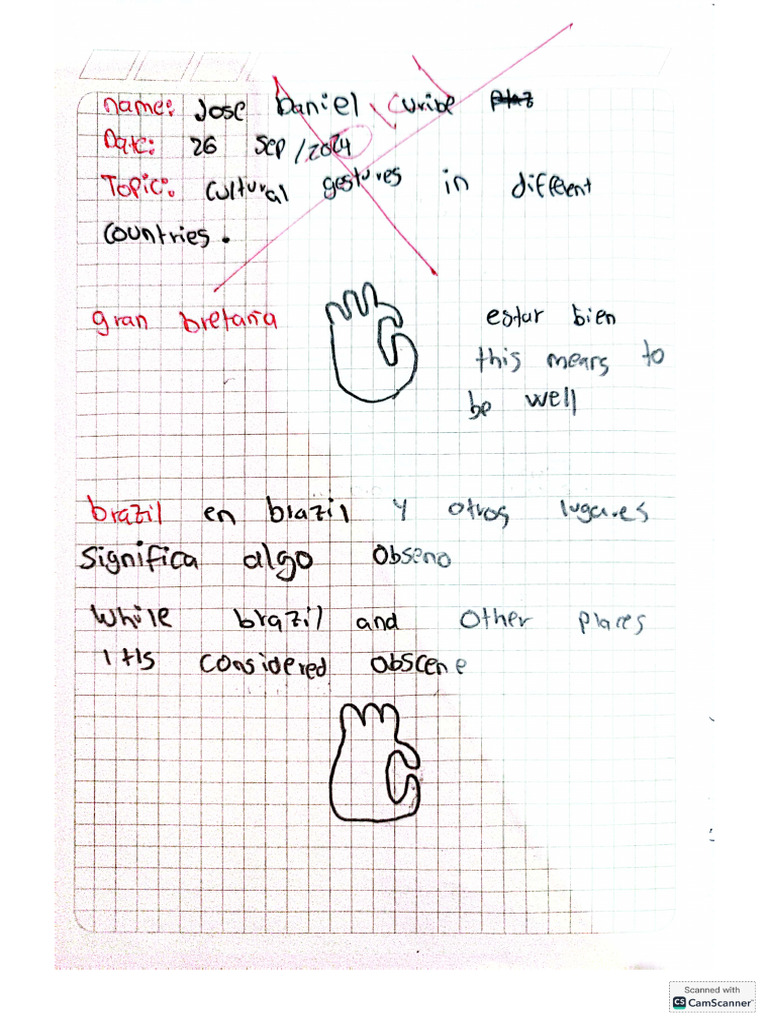 name: Jose Daniel Curibe
Date: 26 Sep/2024
Topic: Cultural gestures in different
countries.
gran bretaña
estar bien
this means to
be well
brazil en brazil y otros lugares
significa algo obseno
While brazil and other places
itis considered obscene
Scanned with
CS CamScanner